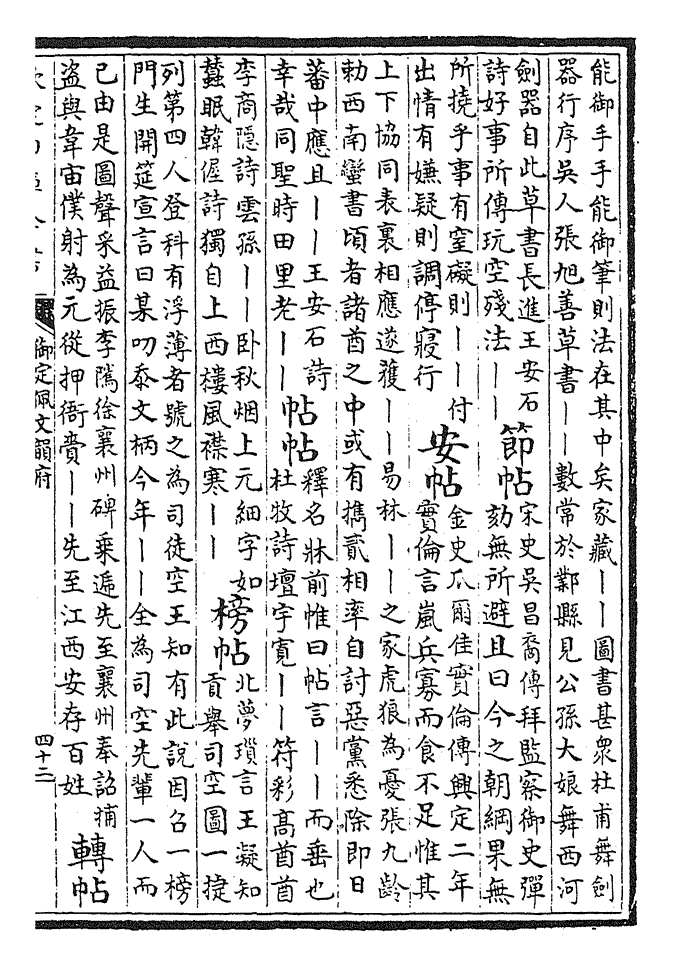 能御手手能御筆則法在其中矣家藏丨丨圖書甚衆杜甫舞劍
器行序吳人張旭善草書丨丨數常於鄴縣見公孫大娘舞西河
劍器自此草書長進王安石
詩好事所傳玩空殘法丨丨
節帖
宋史吳昌裔傳拜監察御史彈
劾無所避且曰今之朝綱果無
所撓乎事有窒礙則丨丨付
出情有嫌疑則調停寢行
安帖
金史瓜爾佳實倫傳興定二年
實倫言嵐兵寡而食不足惟其
上下協同表裏相應遂獲丨丨易林丨丨之家虎狼為憂張九齡
勅西南蠻書頃者諸酋之中或有攜貳相率自討惡黨悉除即日
蕃中應且丨丨王安石詩
幸哉同聖時田里老丨丨
帖帖
釋名牀前惟曰帖言丨丨而垂也
杜牧詩壇宇寬丨丨符彩高酋酋
李商隱詩雲孫丨丨卧秋烟上元細字如
蠶眠韓偓詩獨自上西樓風襟寒丨丨
榜帖
北夢瑣言王凝知
貢舉司空圖一捷
列第四人登科有浮薄者號之為司徒空王知有此說因召一榜
門生開筵宣言曰某叨忝文柄今年丨丨全為司空先輩一人而
已由是圖聲采益振李隲徐襄州碑乘遞先至襄州奉詔捕
盗與韋宙僕射為元從押衙賫丨丨先至江西安存百姓
轉帖
御定佩文韻府
四十二